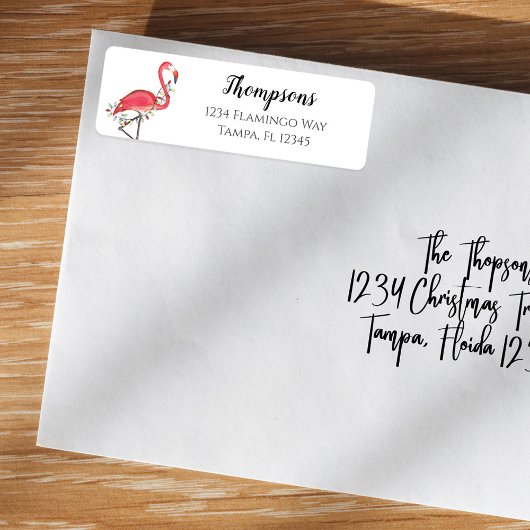 Thompsons
1234 Flamingo Way
Tampa, Fl 12345
The Thopson
1234 Christmas Tr
Tampa, Floida 123